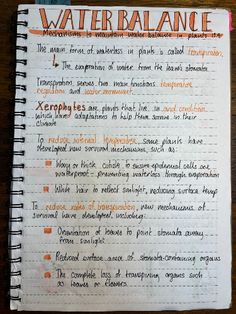 WATER BALANCE
Mechanisms to maintain water balance in plants
The main form of waterloss in plants is called transpiration.
↳ The evaporation of water from the leaf's stomata
Transpiration serves two main functions: temperature
regulation and water movement.
Xerophytes are plants that live in arid conditions
which have adaptations to help them survive in their
climate
To reduce internal temperature, some plants have
developed survival mechanisms, such as:
Waxy or thick cuticle to ensure epidermal cells are
waterproof - preventing waterloss through evaporation
White hair to reflect sunlight, reducing surface temp
To reduce rates of transpiration, new mechanisms of
survival have developed, including:
Orientation of leaves to point stomata away
from sunlight
Reduced surface area of stomata-containing organs
The complete loss of transpiring organs such
as leaves or flowers